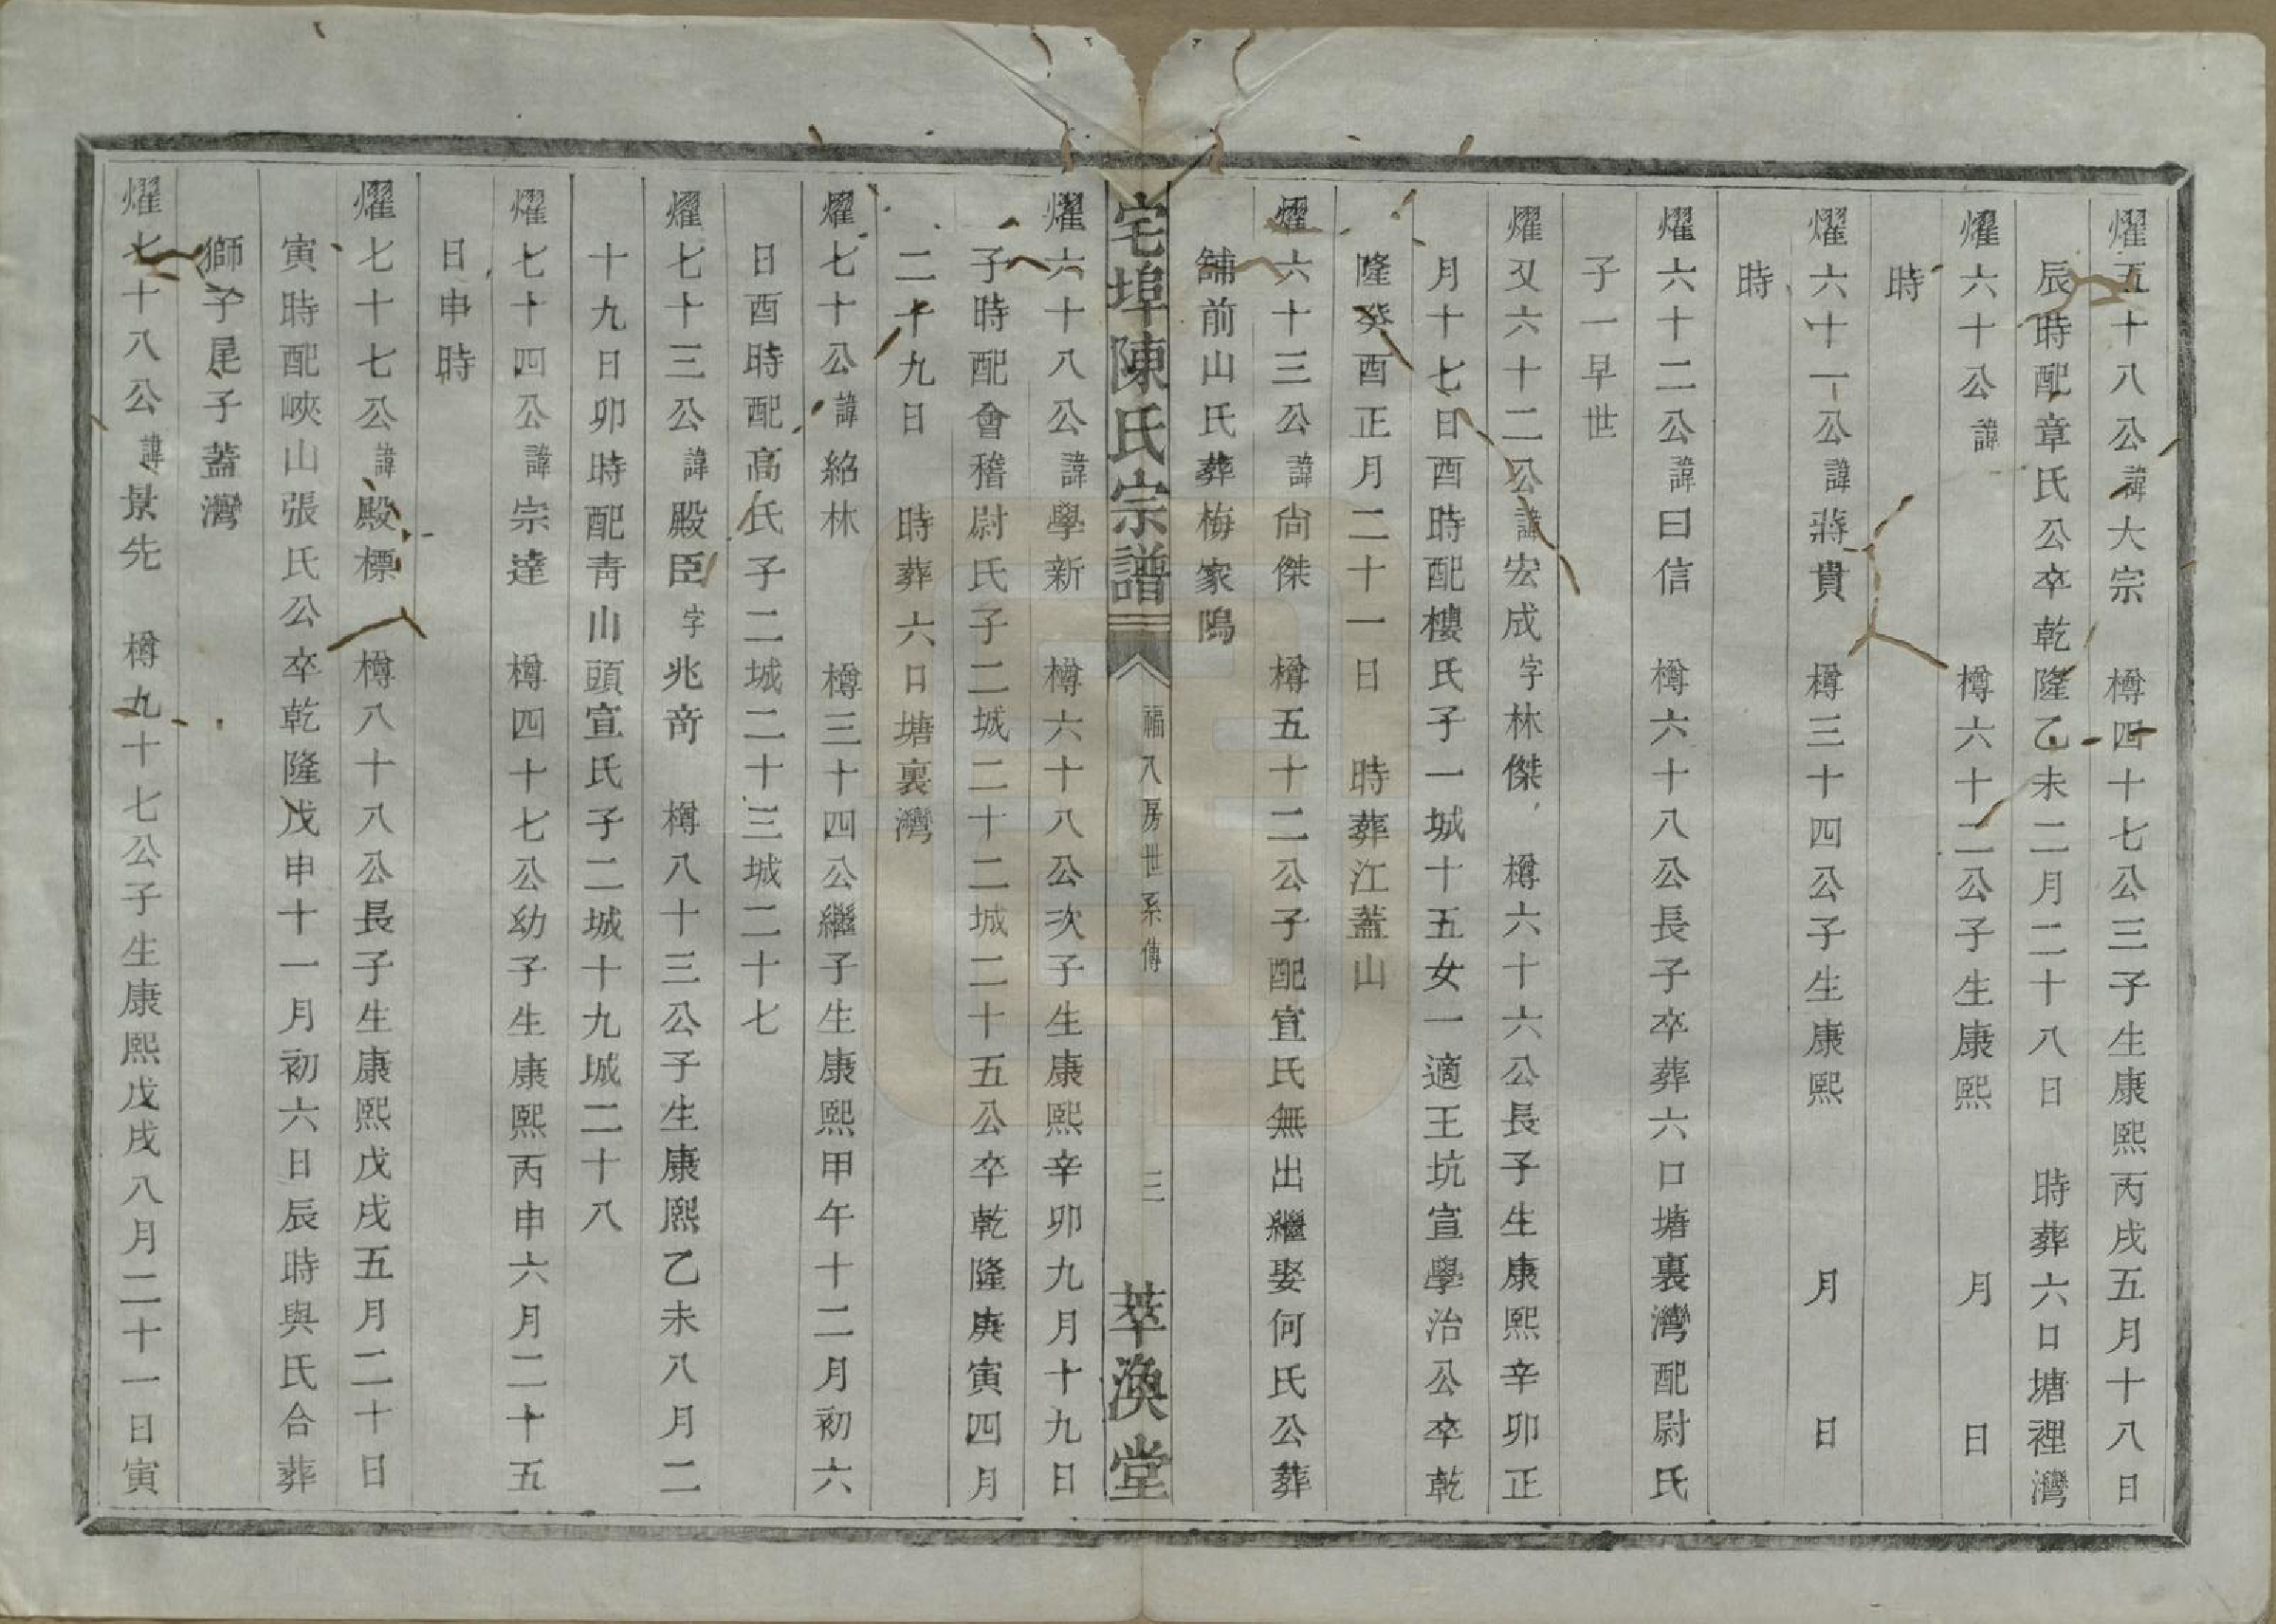 燿五十八公諱大宗　樽四十七公三子生康熙丙戌五月十八日
辰時配章氏公卒乾隆乙未二月二十八日　時葬六口塘裡灣
燿六十公諱　樽六十二公子生康熙　月　日
時
燿六十一公諱蔣貴　樽三十四公子生康熙　月　日
時
燿六十二公諱曰信　樽六十八公長子卒葬六口塘裏灣配尉氏
子一早世
燿又六十二公諱宏成字林傑　樽六十六公長子生康熙辛卯正
月十七日酉時配樓氏子一城十五女一適王坑宣學治公卒乾
隆癸酉正月二十一日　時葬江蓋山
燿六十三公諱尙傑　樽五十二公子配宣氏無出繼娶何氏公葬
舖前山氏葬梅家隖
宅埠陳氏宗譜　福八房世系傳　三　萃渙堂
燿六十八公諱學新　樽六十八公次子生康熙辛卯九月十九日
子時配會稽尉氏子二城二十二城二十五公卒乾隆庚寅四月
二十九日　時葬六口塘裏灣
燿七十公諱紹林　樽三十四公繼子生康熙甲午十二月初六
日酉時配高氏子二城二十三城二十七
燿七十三公諱殿臣字兆奇　樽八十三公子生康熙乙未八月二
十九日卯時配靑山頭宣氏子二城十九城二十八
燿七十四公諱宗達　樽四十七公幼子生康熙丙申六月二十五
日申時
燿七十七公諱殿標　樽八十八公長子生康熙戊戌五月二十日
寅時配峽山張氏公卒乾隆戊申十一月初六日辰時與氏合葬
獅子尾子蓋灣
燿七十八公諱景先　樽九十七公子生康熙戊戌八月二十一日寅